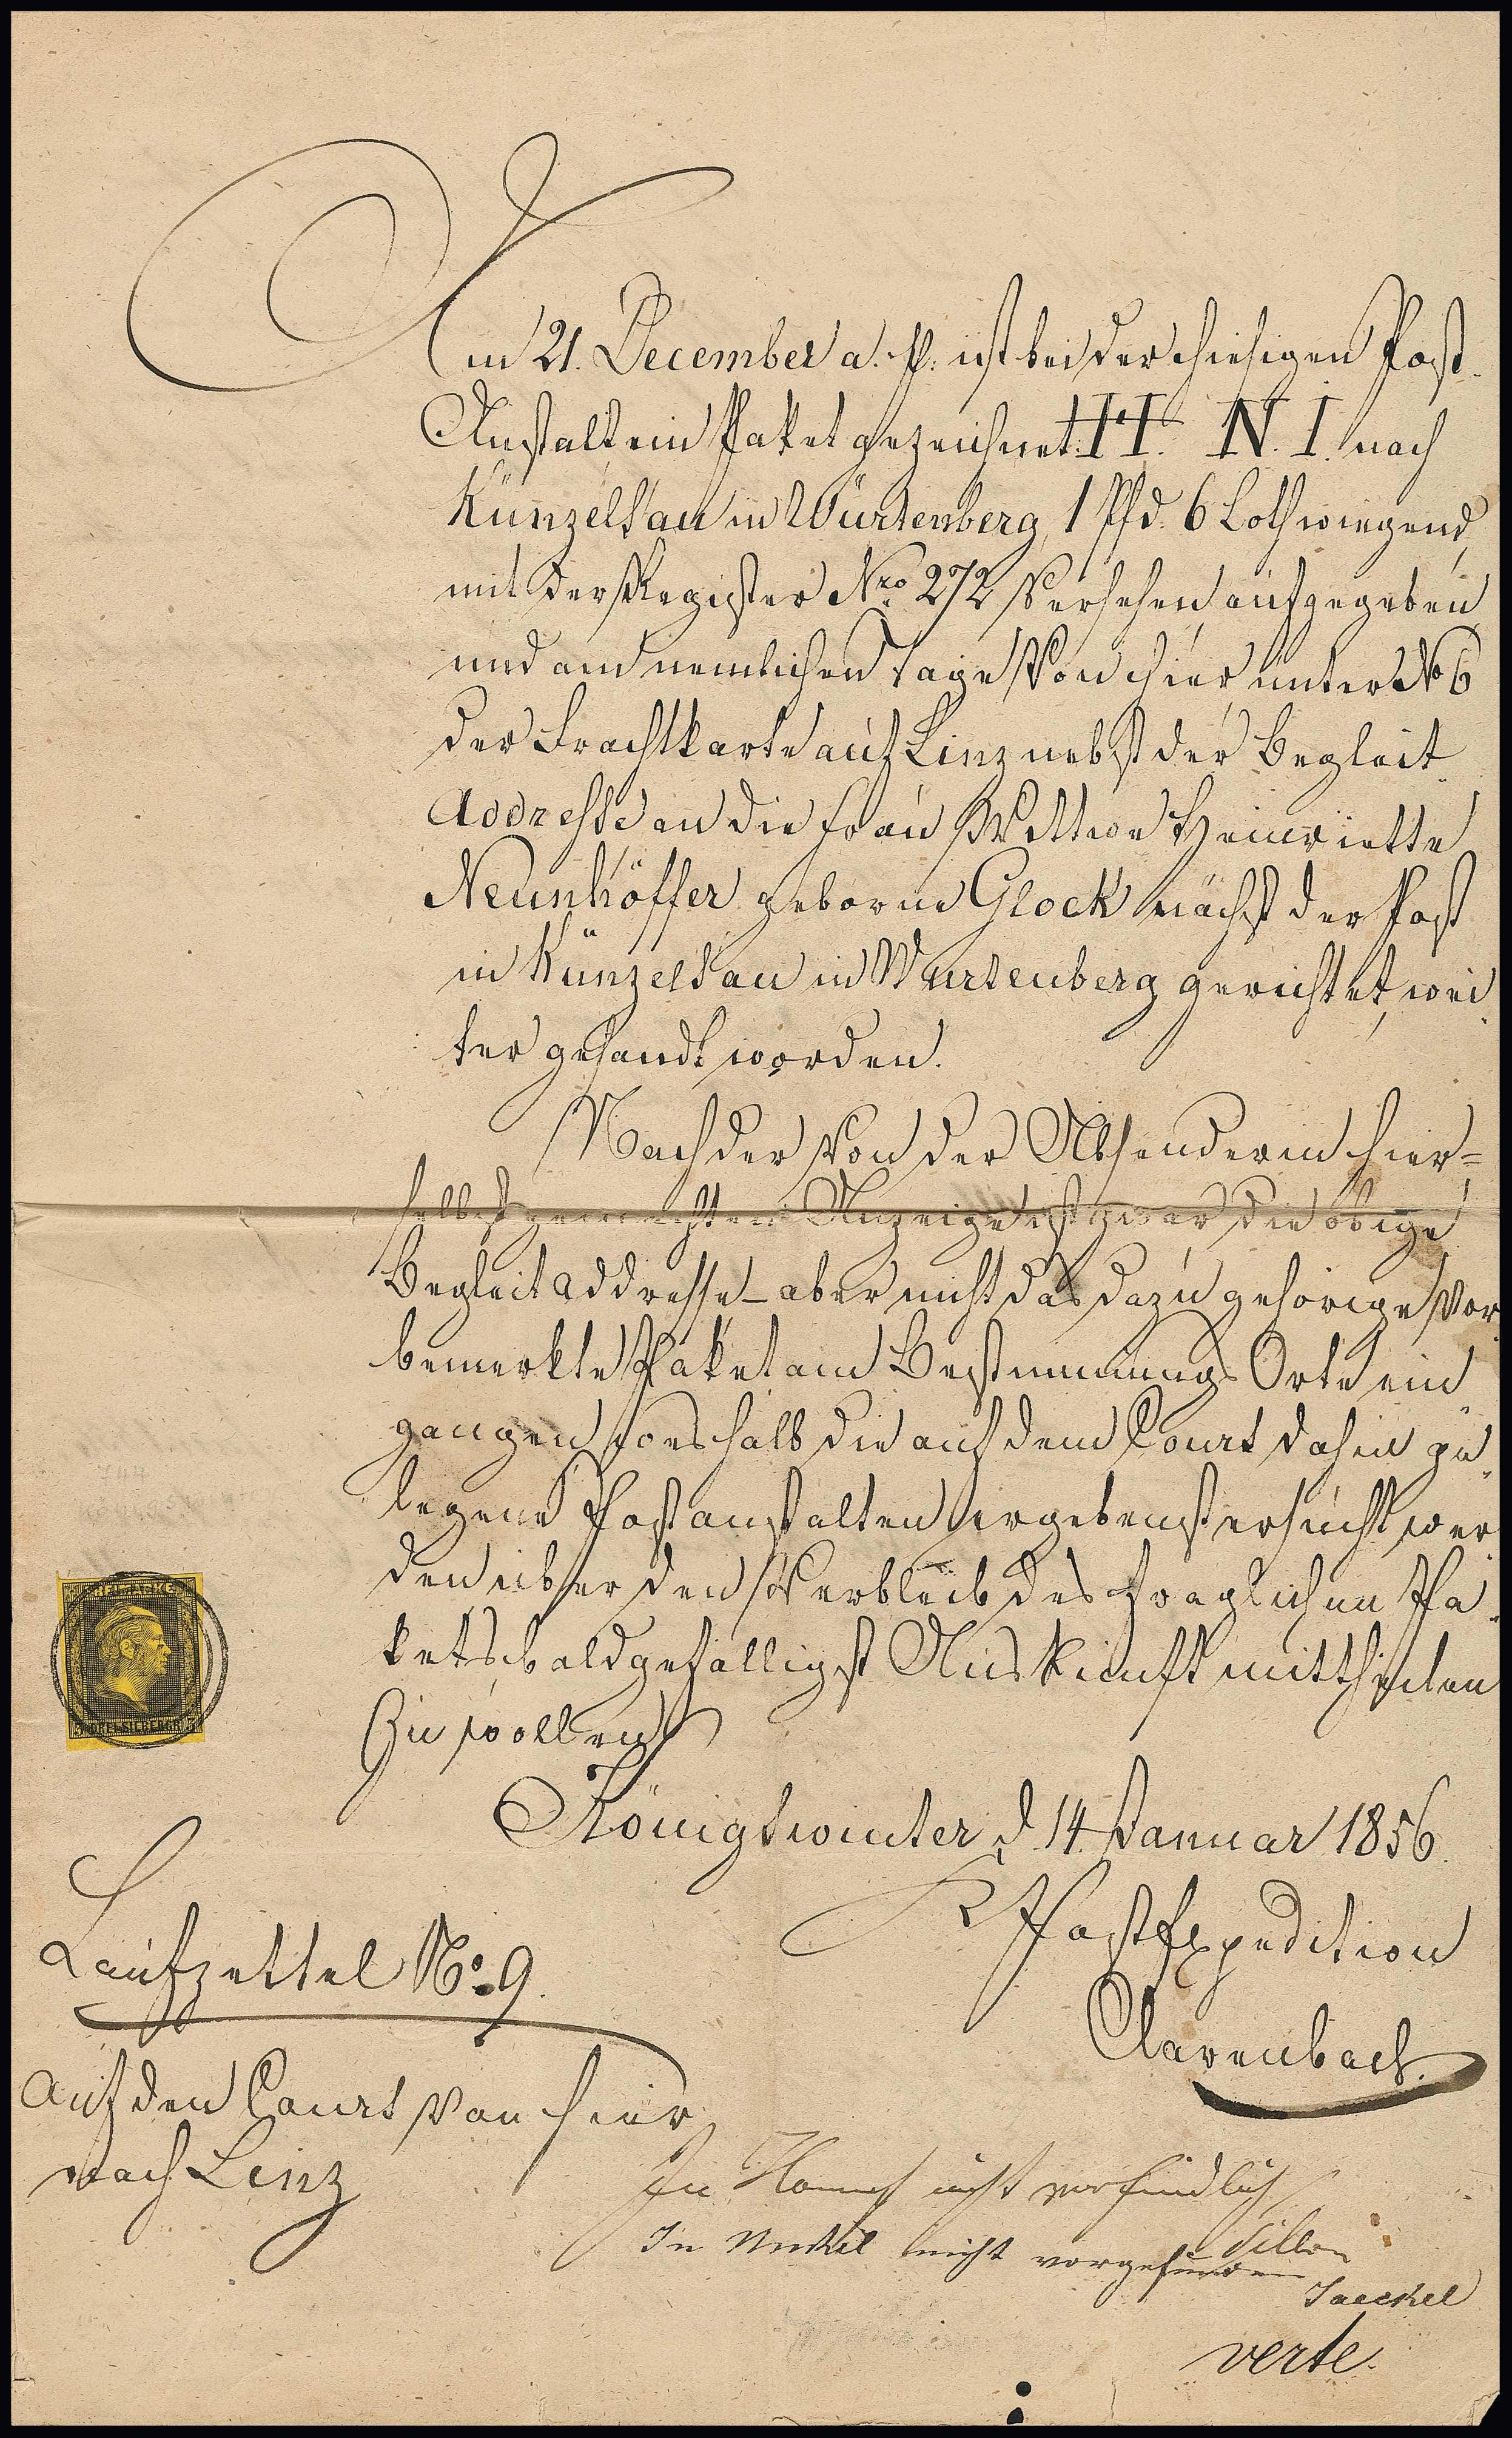 Am 21. December a. p. ist bei der hiesigen Post-
Anstalt ein Paket gezeichnet H. N. I. nach
Künzelsau in Würtenberg, 1 Pfd. 6 Loth wiegend,
mit der Register Nro 272 versehen, aufgegeben
und am nemlichen Tage von hier unter No 6
der Frachtkarte auf Linz nebst der Begleit-
Addresse an die Frau Wittwe Henriette
Neunhöffer geborne Glock nächst der Post
in Künzelsau in Wurtenberg gerichtet, wei-
ter gesandt worden.
Nach der von der Absenderin hier=
selbst gemachten Anzeige ist zwar die obige
Begleitaddresse – aber nicht das dazu gehörige vor-
bemerkte Paket am Bestimmungs Orte ein
gangen, weshalb die auf dem Cours dahin ge-
legene Postanstalten ergebenst ersucht wer-
den über den Verbleib des fraglichen Pa-
kets baldgefälligst Auskunft mittheilen
zu wollen.
FREIMARKE
3 DREI SILBERGR. 3
Königswinter d. 14. Januar 1856.
Post Expedition
Clarenbach.
Laufzettel No. 9.
auf den Cours von hier
nach Linz
In Honnef nicht vorfindlich
In Unkel nicht vorgefunden
Jaeckel
verte.